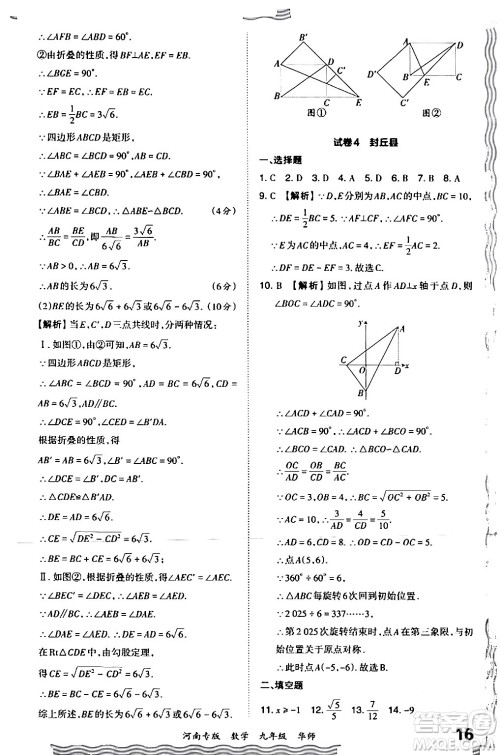 ∴∠ABE=∠AFE=60°.
②由折叠的性质,得BF⊥AE,EF=CE.
∴∠BGE=90°.
∵EF=EC,BE=EF,
∴EB=1/2BC=3√6.
∵四边形ABCD是矩形,
∴∠ABC=∠BCD=90°.
∴∠ABE=∠BCD.
∵∠ABE=∠BGE=90°,
∴∠BAE=∠CBD.
∵∠ABE=∠BCD,∴△ABE∽△BCD. (4分)
∴AB/BC=BE/CD,即AB/6√6=3√6/AB.
∵AB>0,∴AB=6√3.
∴AB的长为6√3. (6分)
(2)BE的长为6√6+6√3或6√6-6√3. (10分)
【解析】当E,C′,D三点共线时,分两种情况:
Ⅰ.如图①,由①可知BC=6√6.
∵四边形ABCD是矩形,
∴∠ABC=∠BCD=90°,
CD=AB=6√3,AD=BC=6√6.
∴∠DCE=90°.∴∠DCE=∠B′.
根据折叠的性质,得
AB′=AB=6√3,∠B′=∠ABC=90°.
∴CD=AB′=6√3.
∴△CDE≌△B′AD.
∴DE=AD=6√6.
∴CE=√(DE²-CD²)=6√3.
∴BE=BC+CE=6√6+6√3.
Ⅱ.如图②,根据折叠的性质,得AEC′=AEC,
∵∠BEB′=∠DEC,∴∠BEA=∠AED.
∵AD∥BC,∴∠DAE=∠BEA.
∴∠DAE=∠AED.∴DE=DA=6√6.
在Rt△CDE中,由勾股定理,
得CE=√(DE²-CD²)=6√3.
∴BE=BC-CE=6√6-6√3.
综上所述,BE的长为6√6+6√3或6√6-6√3.
A D B C E
图①
A D B E C
图②
试卷4 封丘县
一、选择题
1.C 2.D 3.C 4.D 5.C 6.D 7.B 8.A
9.C【解析】∵D,E分别为AB,AC的中点,BC=10,
∴DE=1/2BC=5.∵AF⊥CF,∴∠AFC=90°.
∵E为AC的中点,AC=6,∴EF=1/2AC=3.
∴DF=DE-EF=2.故选C.
10.B【解析】如图,过点A作AD⊥x轴于点D,则
∠BOC=∠ADC=90°.
y A C O D x B
∴∠ACD+∠CAD=90°.
∵∠ACB=90°,∴∠ACD+∠BCO=90°.
∴∠CAD=∠BCO.∴△ACD∽△CBO.
∴OC/AD=OB/CD=BC/AC.
∵OC=3,OB=4,∴BC=√(OC²+OB²)=5.
∵AC=10,∴3/AD=4/CD=5/10.
∴AD=6,CD=8.∴OD=CD-OC=5.
∴点A(5,6).
∵360°÷60°=6,
∴△ABC每旋转6次回到初始位置.
∵2 025÷6=337……3,
∴第2 025次旋转结束时,点A在第三象限,与
初始位置关于原点对称.
∴此时点A(-5,-6).故选B.
二、填空题
11.x≥-1 12.√5/5 13.7/12 14.-9
河南专版 数学 九年级 华师
16